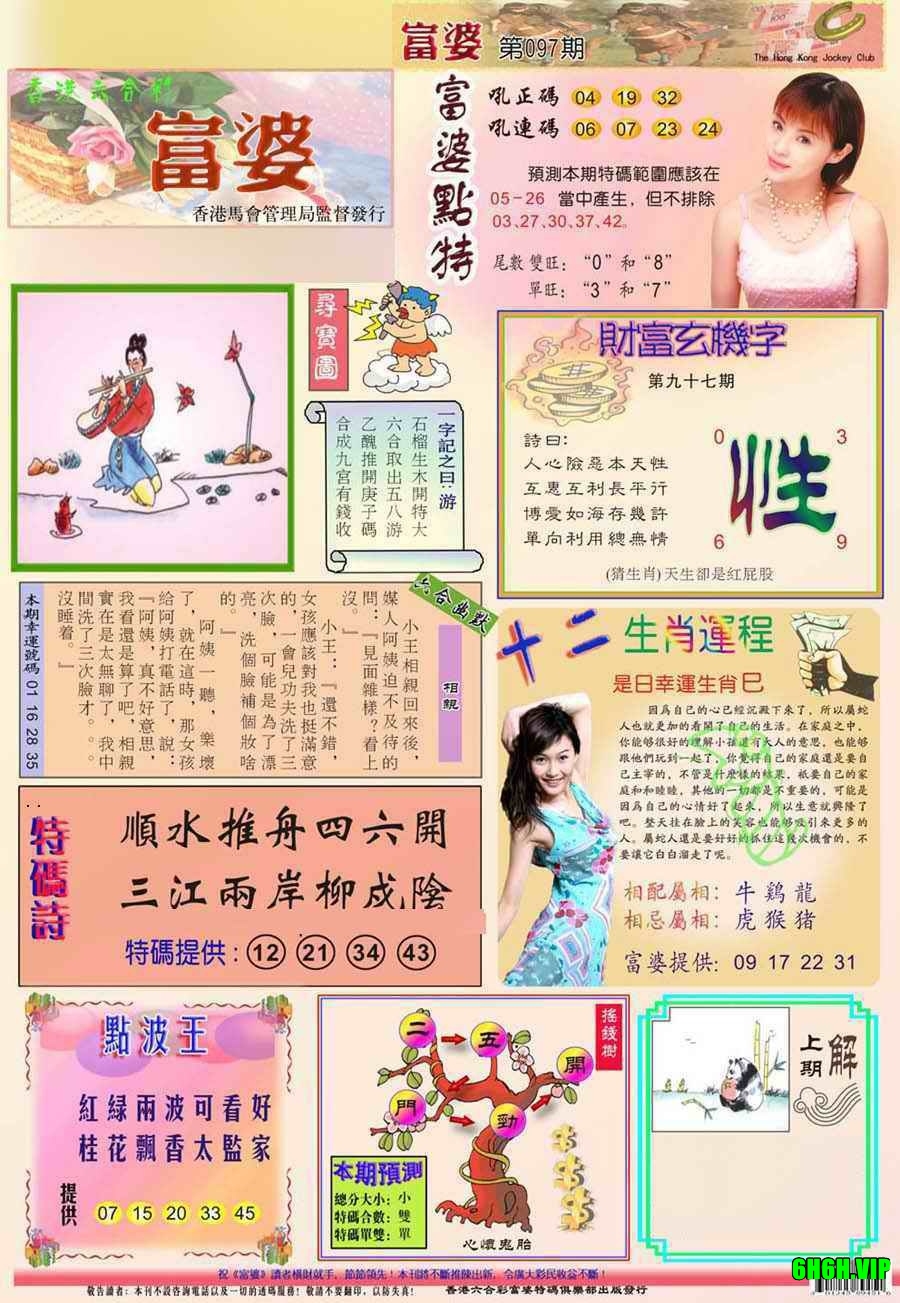 富婆 第097期
The Hong Kong Jockey Club
香港六合彩
富婆
香港馬會管理局監督發行
富婆點特
吼正碼 04 19 32
吼連碼 06 07 23 24
預測本期特碼範圍應該在
05-26 當中產生，但不排除
03、27、30、37、42。
尾數雙旺：“0”和“8”
單旺：“3”和“7”
尋寶圖
一字記之曰：游
石榴生木開特大
六合取出五八游
乙醜推開庚子碼
合成九宮有錢收
財富玄機字
第九十七期
詩曰：
人心險惡本天性
互惠互利長平行
博愛如海存幾許
單向利用總無情
0 3
性
6 9
(猜生肖)天生卻是紅屁股
六合幽默
相親
小王相親回來後，
媒人阿姨迫不及待的
問：『見面雜樣？看上
沒。』
小王：『還不錯，
女孩應該對我也挺滿意
的，一會兒功夫洗了三
次臉，可能是為了漂
亮，洗個臉補個妝啥
的。』
阿姨一聽，樂壞
了，就在這時，那女孩
給阿姨打電話了，說：
『阿姨，真不好意思，
我看還是算了吧，相親
實在是太無聊了，我中
間洗了三次臉才。。
沒睡着。』
本期幸運號碼 01 16 28 35
十二生肖運程
是日幸運生肖巳
因爲自己的心已經沉澱下來了，所以屬蛇
人也就更加的看開了自己的生活。在家庭之中，
你能够很好的理解小孩還有大人的意思，也能够
跟他們玩到一起了，你覺得自己的家庭還是要自
己主宰的，不管是什麽樣的結果，衹要自己的家
庭和和睦睦，其他的一切都是不重要的，可能是
因爲自己的心情好了起來，所以生意就興隆了
吧。整天挂在臉上的笑容也能够吸引來更多的
人。屬蛇人還是要好好的抓住這幾次機會的，不
要讓它白白溜走了呢。
相配屬相：牛 鷄 龍
相忌屬相：虎 猴 猪
富婆提供：09 17 22 31
特碼詩
順水推舟四六開
三江兩岸柳成陰
特碼提供：12 21 34 43
點波王
紅緑兩波可看好
桂花飄香太監家
提供 07 15 20 33 45
搖錢樹
二 五 開
門 勁
本期預測
總分大小：小
特碼合數：雙
特碼單雙：單
心懷鬼胎
上期解
祝《富婆》讀者橫財就手，節節領先！本刊將不斷推陳出新，令廣大彩民收益不斷！
敬告讀者：本刊不設咨詢電話以及一切的透碼服務！敬請不要翻印，以防失真！
香港六合彩富婆特碼俱樂部出版發行
6H6H.VIP